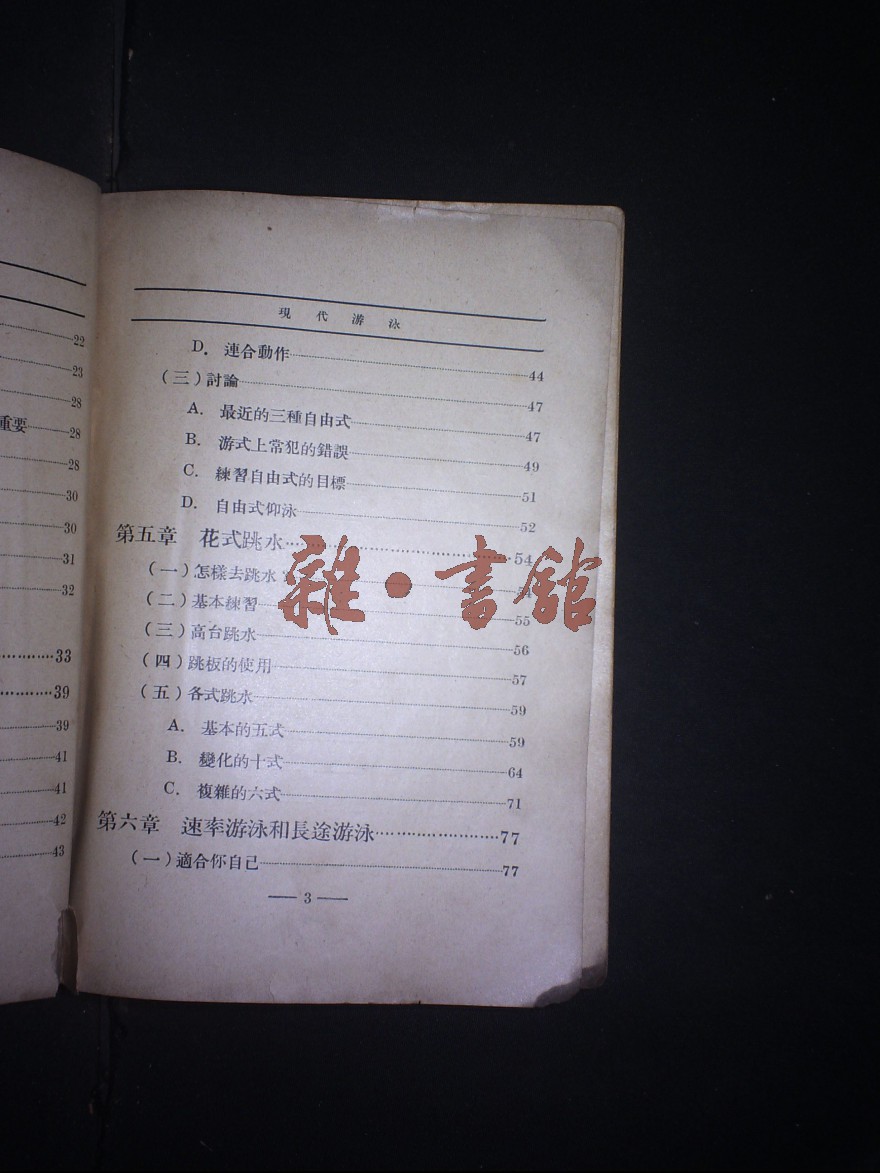 22
23
28
重要 28
28
30
30
31
32
33
39
39
41
41
42
43
現代游泳
D. 連合動作 44
(三)討論 47
A. 最近的三種自由式 47
B. 游式上常犯的錯誤 49
C. 練習自由式的目標 51
D. 自由式仰泳 52
第五章 花式跳水 54
(一)怎樣去跳水
(二)基本練習 55
(三)高台跳水 56
(四)跳板的使用 57
(五)各式跳水 59
A. 基本的五式 59
B. 變化的十式 64
C. 複雜的六式 71
第六章 速率游泳和長途游泳 77
(一)適合你自己 77
— 3 —
雜·書館